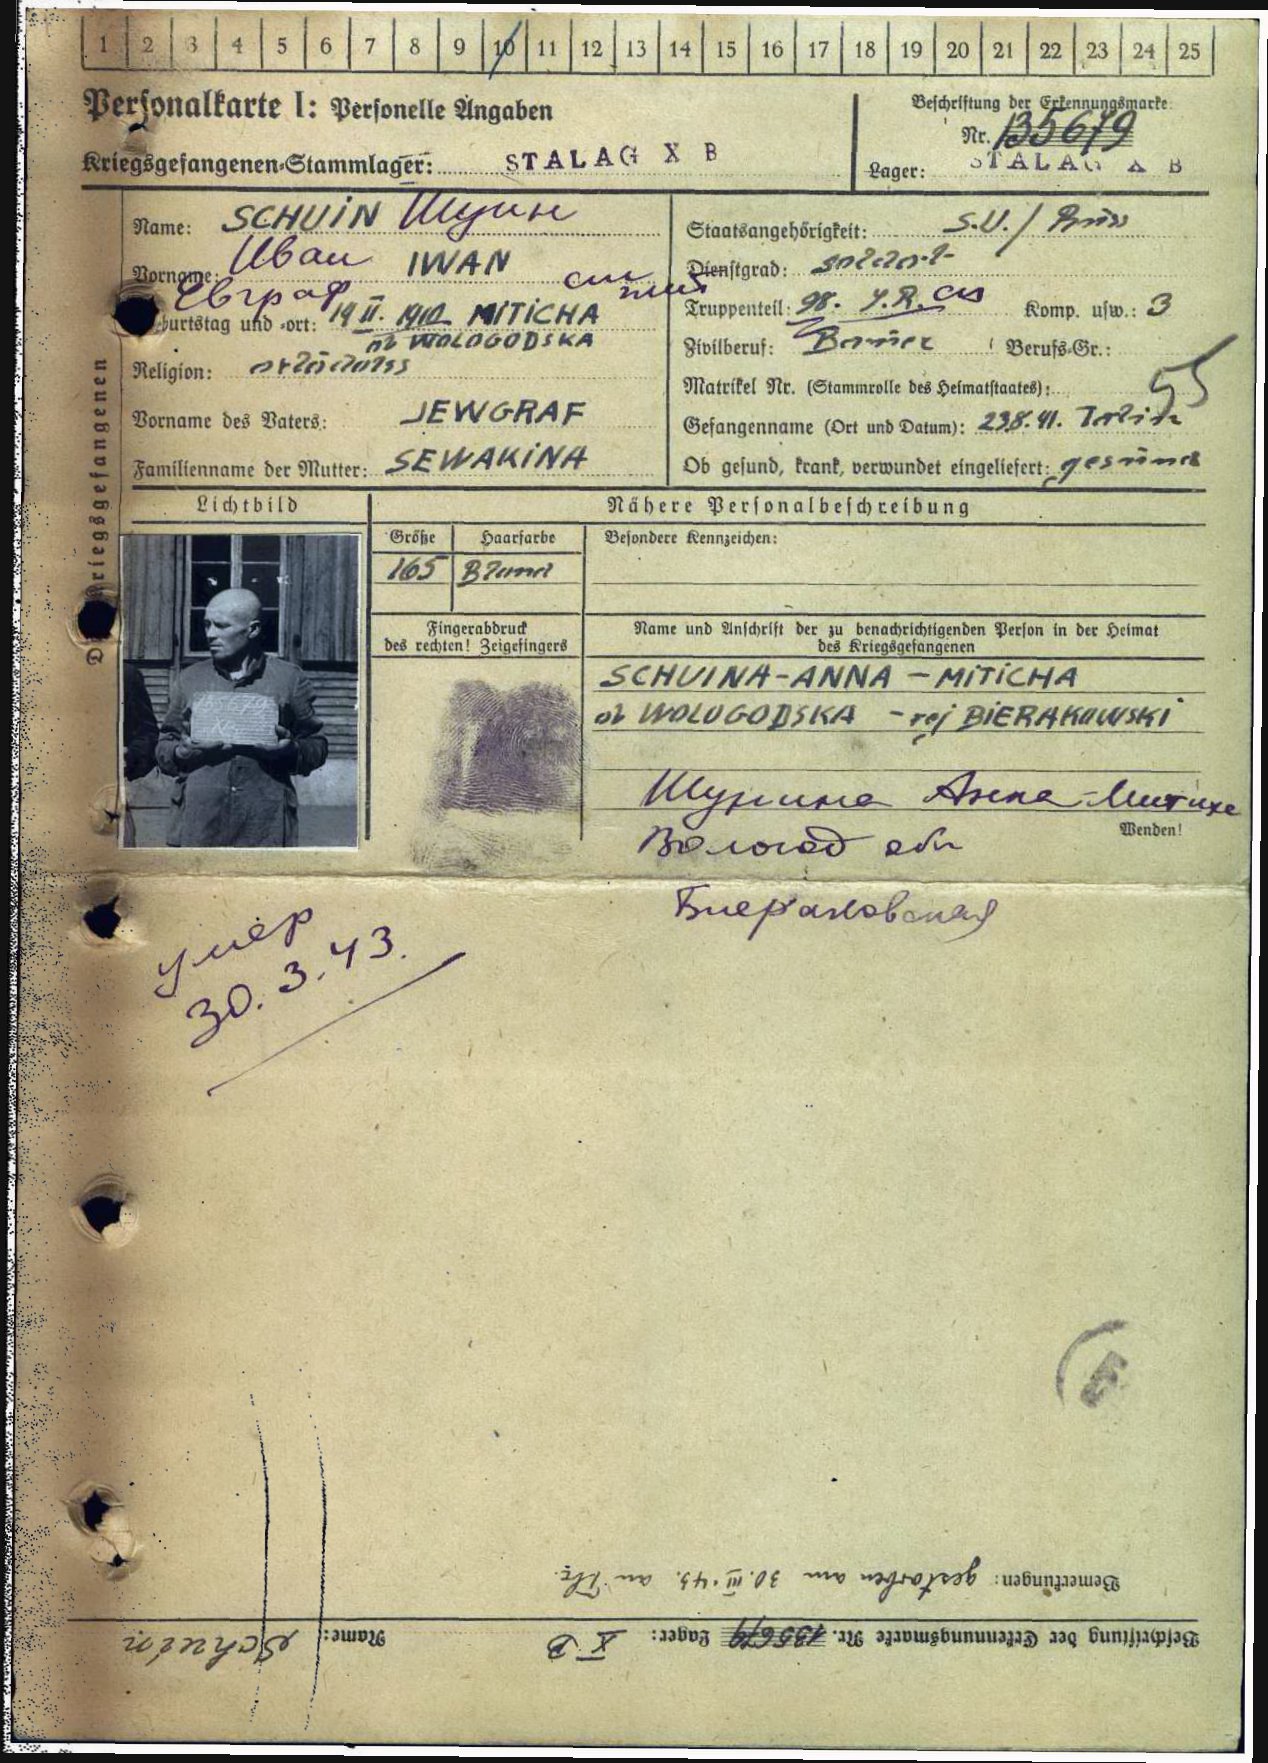 1 2 3 4 5 6 7 8 9 10 11 12 13 14 15 16 17 18 19 20 21 22 23 24 25
Personalkarte I: Personelle Angaben
Kriegsgefangenen-Stammlager: STALAG X B
Beschriftung der Erkennungsmarke
Nr. 135679
Lager: STALAG X B
riegsgefangenen
Name: SCHUIN Шуин
Vorname: Иван IWAN
Евграф
burtstag und -ort: 19 II. 1910 MITICHA
ob WOLOGODSKA
Religion:
Vorname des Vaters: JEWGRAF
Familienname der Mutter: SEWAKINA
Staatsangehörigkeit: S.U./
Dienstgrad: soldat
Truppenteil: 98. J.R. Komp. usw.: 3
Zivilberuf: Bauer Berufs-Gr.:
Matrikel Nr. (Stammrolle des Heimatstaates):
55
Gefangenname (Ort und Datum): 23.8.41.
Ob gesund, krank, verwundet eingeliefert: gesund
Lichtbild
Nähere Personalbeschreibung
Größe Haarfarbe Besondere Kennzeichen:
165 Blond
Fingerabdruck
des rechten! Zeigefingers
Name und Anschrift der zu benachrichtigenden Person in der Heimat
des Kriegsgefangenen
SCHUINA-ANNA-MITICHA
ob WOLOGODSKA - rej BIERAKOWSKI
Шуина Анна Митихе
Wenden!
Вологод обл
Биераковская
умер
30.3.43.
Bemerkungen: gestorben am 30.III.43. an Tbc.
Beschriftung der Erkennungsmarke Nr. 135679 Lager: X B Name: Schuin